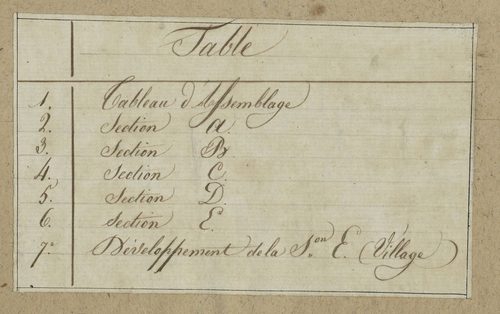 Table
1. Tableau d'Assemblage
2. Section A.
3. Section B.
4. Section C.
5. Section D.
6. Section E.
7° Développement de la S.on E. (Village)